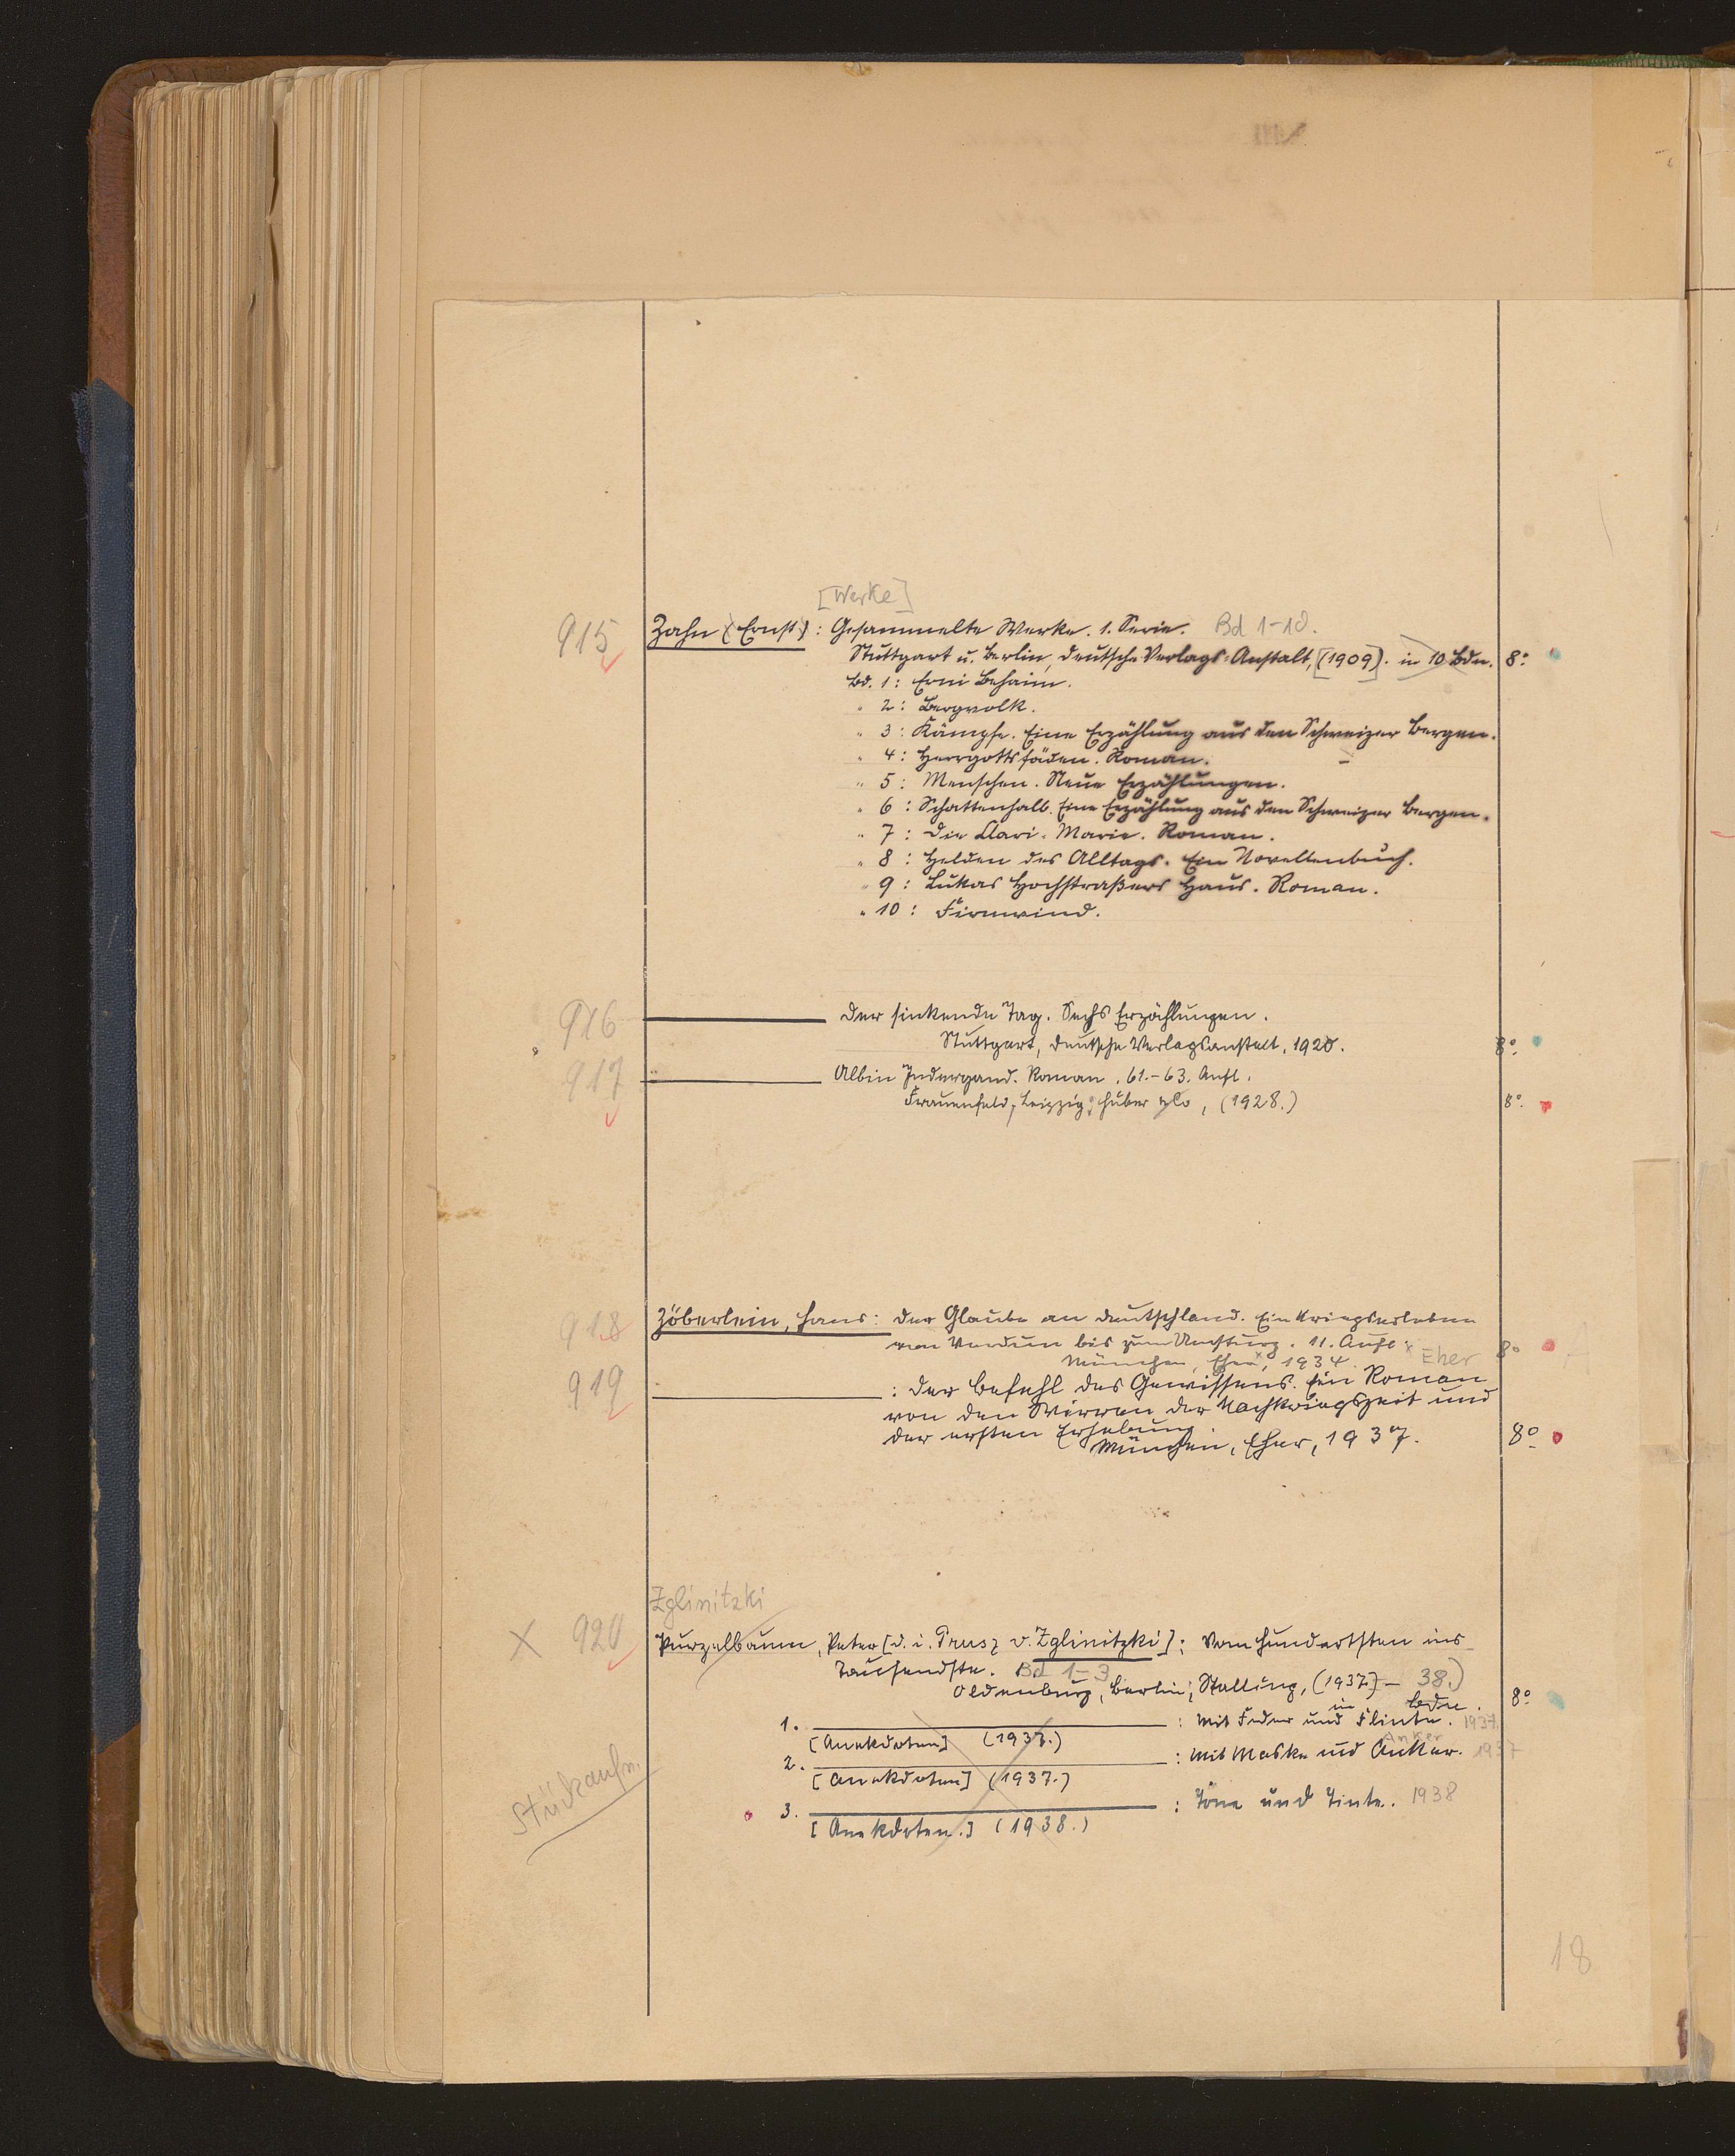 [Werke]
915 Zahn (Ernst): Gesammelte Werke. 1. Serie. Bd 1-10.
Stuttgart u. Berlin, Deutsche Verlags-Anstalt, [1909]. in 10 Bdn. 8°
Bd. 1: Erni Behaim.
" 2: Bergvolk.
" 3: Kämpfe. Eine Erzählung aus den Schweizer Bergen.
" 4: Herrgottsfäden. Roman.
" 5: Menschen. Neue Erzählungen.
" 6: Schattenhalb. Eine Erzählung aus den Schweizer Bergen.
" 7: Die Clari-Marie. Roman.
" 8: Helden des Alltags. Ein Novellenbuch.
" 9: Lukas Hochstraßers Haus. Roman.
" 10: Firnwind.
916 Der sinkende Tag. Sechs Erzählungen.
Stuttgart, Deutsche Verlagsanstalt, 1920. 8°
917 Albin Indergand. Roman. 61.-63. Aufl.
Frauenfeld, Leipzig; Huber & Co, (1928.) 8°
918 Zöberlein, Hans: Der Glaube an Deutschland. Ein Kriegserleben
von Verdun bis zum Umsturz. 11. Aufl. 8°
München, Eher, 1934. Eher
919 : Der Befehl des Gewissens. Ein Roman
von den Wirren der Nachkriegszeit und
der ersten Erhebung.
München, Eher, 1937. 8°
Zglinitzki
X 920 Purzelbaum, Peter [d. i. Prusz v. Zglinitzki]: Vom Hundertsten ins
Tausendste. Bd 1-3
Oldenburg, Berlin; Stalling, (1937)- 38.) 8°
in Bdn.
1. : Mit Feder und Flinte. 1937.
[Anekdoten] (1937.)
Anker
2. : Mit Maske und Anker. 1937
[Anekdoten] (1937.)
3. : Töne und Tinte. 1938
[Anekdoten.] (1938.)
Stückaufn.
18